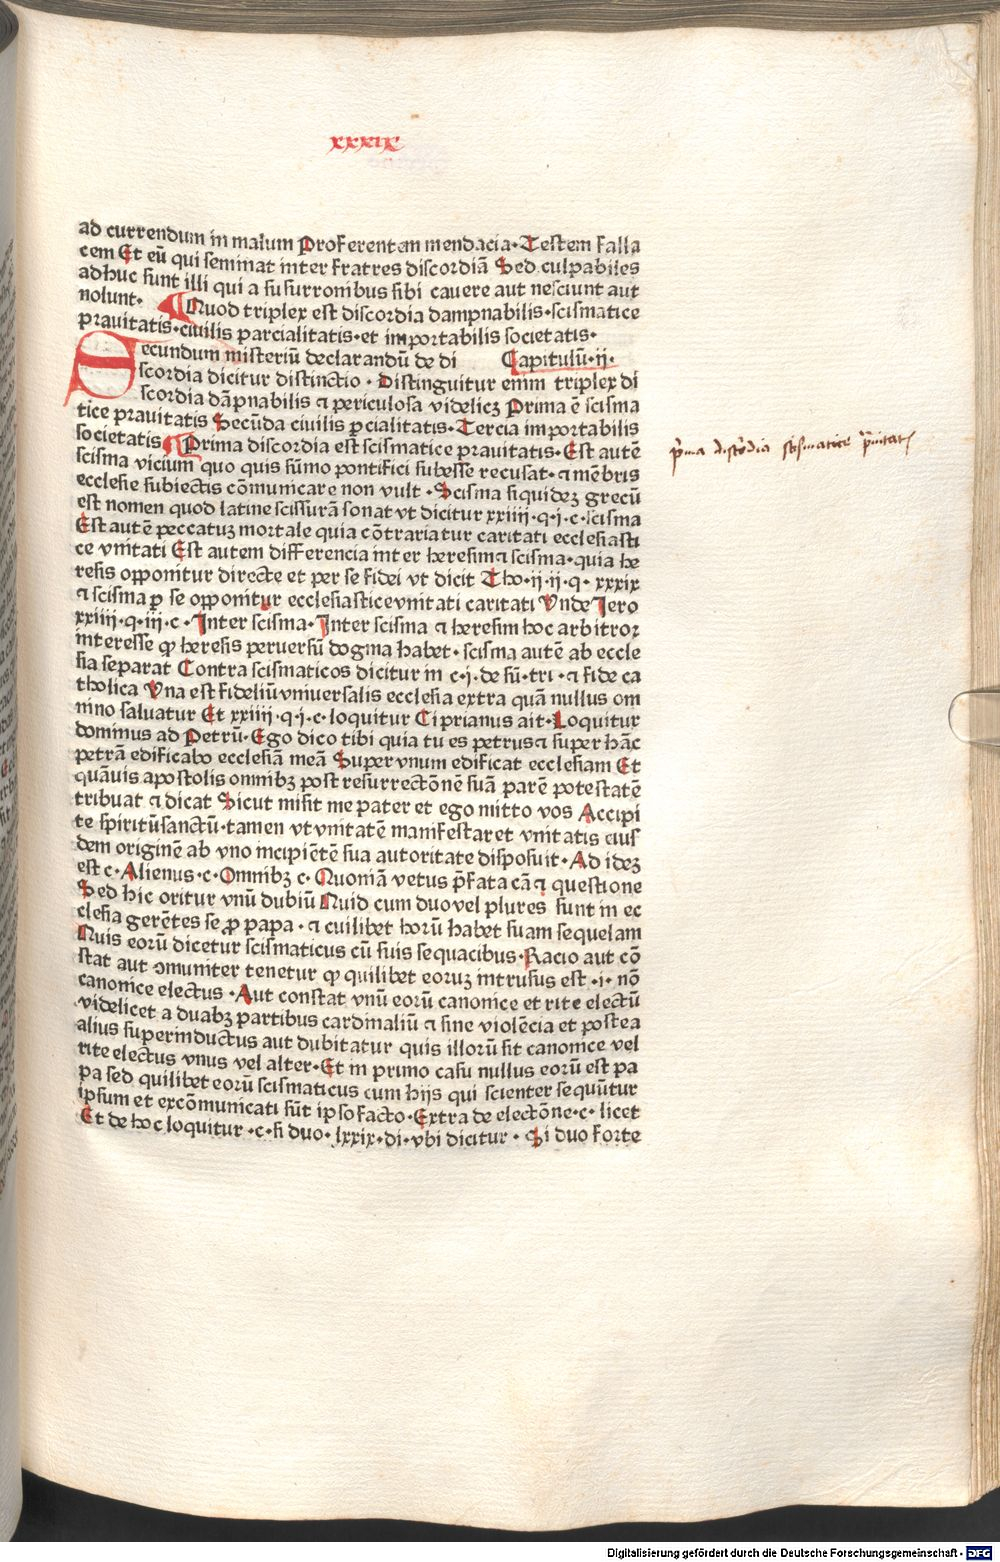 xxxix
ad currendum in malum Proferentem mendacia. Testem falla
cem Et eū qui seminat inter fratres discordiā Sed culpabiles
adhuc sunt illi qui a susurronibus sibi cavere aut nesciunt aut
nolunt. ¶ Quod triplex est discordia dampnabilis. scismatice
pravitatis. civilis parcialitatis. et importabilis societatis.
Secundum misteriū declarandū de di Capitulū .ij.
scordia dicitur distinctio. Distinguitur enim triplex di
scordia dāpnabilis ⁊ periculosa videlicꝫ Prima ē scisma
tice pravitatis Secūda civilis ꝑcialitatis. Tercia importabilis
societatis ¶ Prima discordia est scismatice pravitatis. Est autē
scisma vicium quo quis sūmo pontifici subesse recusat. ⁊ mēbris
ecclesie subiectis cōmunicare non vult. Scisma siquideꝫ grecū
est nomen quod latine scissurā sonat vt dicitur xxiiii.q.i.c.scisma
Est autē peccatuꝫ mortale quia cōtrariatur caritati ecclesiasti
ce vnitati Est autem differencia inter heresim ⁊ scisma. quia he
resis opponitur directe et per se fidei vt dicit Tho.ii.ii.q. xxxix
⁊ scisma ꝑ se opponitur ecclesiastice vnitati caritati Vnde Jero
xxiiii.q.iii.c. Inter scisma. Inter scisma ⁊ heresim hoc arbitror
interesse ꝙ heresis perversū dogma habet. scisma autē ab eccle
sia separat Contra scismaticos dicitur in c.i.de sū.tri.⁊ fide ca
tholica Vna est fideliū vniversalis ecclesia extra quā nullus om
nino salvatur Et xxiiii.q.i.c.loquitur Ciprianus ait. Loquitur
dominus ad Petrū. Ego dico tibi quia tu es petrus ⁊ super hāc
petrā edificabo ecclesiā meā Super vnum edificat ecclesiam Et
quāvis apostolis omnibꝫ post resurrectōnē suā parē potestatē
tribuat ⁊ dicat Sicut misit me pater et ego mitto vos Accipi
te spiritūsanctū. tamen vt vnitatē manifestaret vnitatis eius
dem originē ab vno incipiētē sua autoritate disposuit. Ad ideꝫ
est c. Alienus. c. Omnibꝫ c. Quoniā vetus p̄fata cā ⁊ questione
Sed hic oritur vnū dubiū Quid cum duo vel plures sunt in ec
clesia gerētes se ꝓ papa. ⁊ cuilibet horū habet suam sequelam
Quis eorū dicetur scismaticus cū suis sequacibus. Racio aut cō
stat aut ꝯmuniter tenetur ꝙ quilibet eoruꝫ intrusus est .i. nō
canonice electus. Aut constat vnū eorū canonice et rite electū
videlicet a duabꝫ partibus cardinaliū ⁊ sine violēcia et postea
alius superinductus aut dubitatur quis illorū sit canonice vel
rite electus vnus vel alter. Et in primo casu nullus eorū est pa
pa sed quilibet eorū scismaticus cum hijs qui scienter sequūtur
ipsum et excōmunicati sūt ipso facto. Extra de electōne.c. licet
Et de hoc loquitur .c. si duo. lxxix.di.vbi dicitur. Si duo forte
p̄ma discordia scismatice p̄vitatis
Digitalisierung gefördert durch die Deutsche Forschungsgemeinschaft - DFG